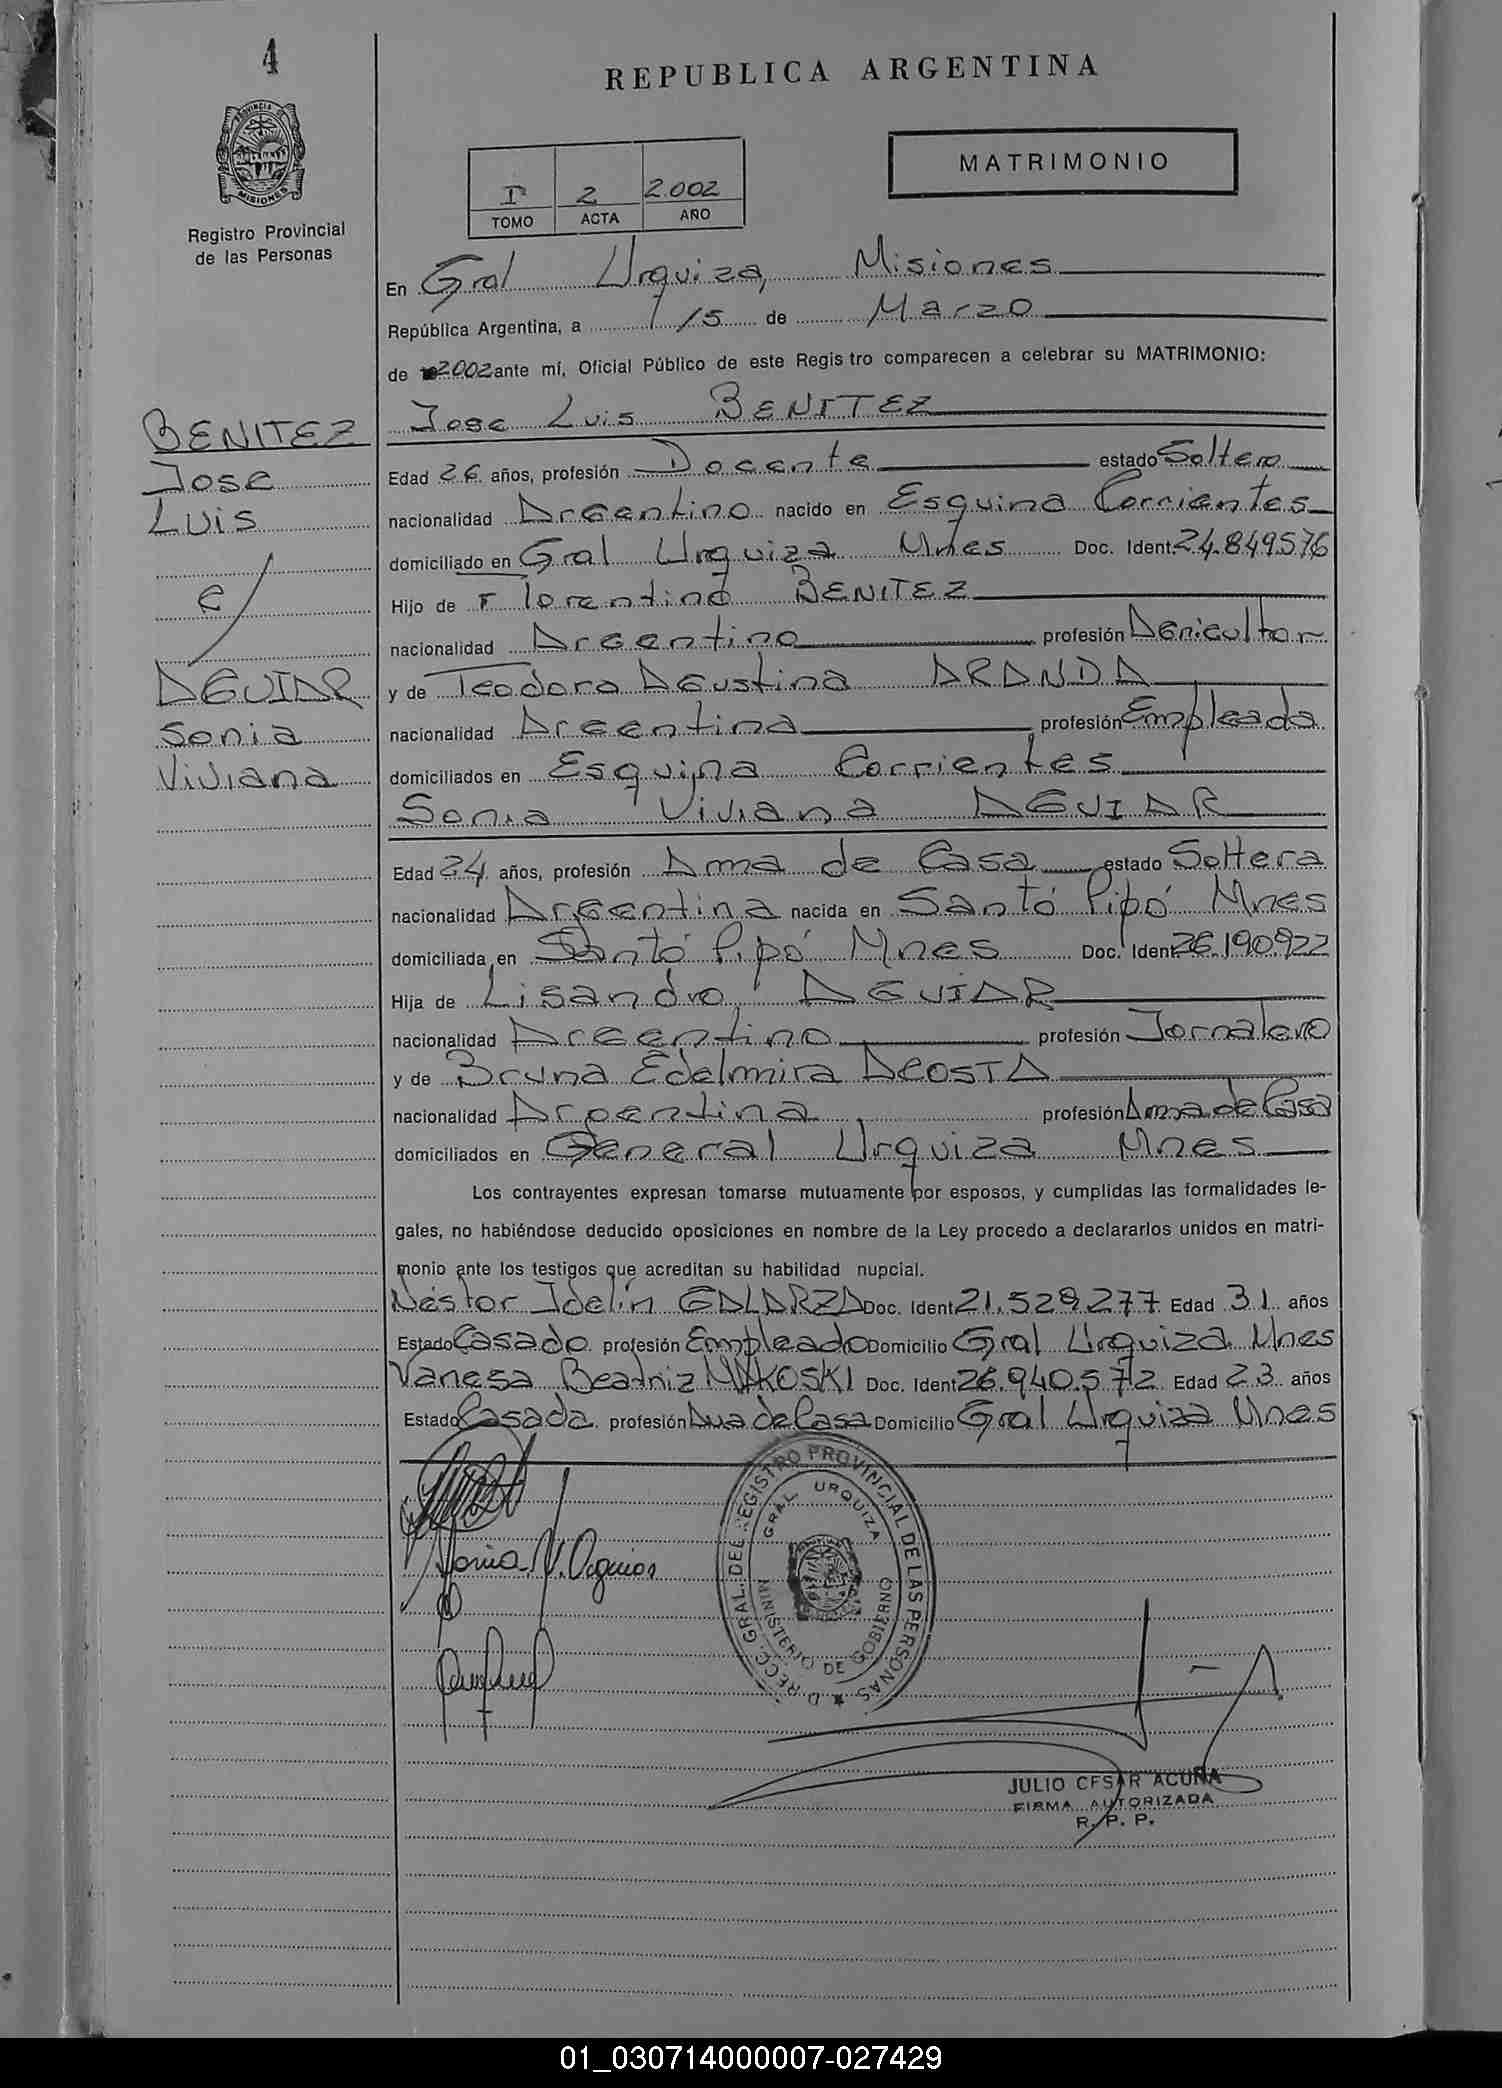 4
REPUBLICA ARGENTINA
PROVINCIA DE MISIONES
Registro Provincial
de las Personas
MATRIMONIO
I 2 2.002
TOMO ACTA AÑO
En Gral Urquiza, Misiones
República Argentina, a 15 de Marzo
de 2002 ante mí, Oficial Público de este Registro comparecen a celebrar su MATRIMONIO:
Jose Luis BENITEZ
BENITEZ
Jose
Luis
c/
AGUIAR
Sonia
Viviana
Edad 26 años, profesión Docente estado Soltero
nacionalidad Argentino nacido en Esquina Corrientes
domiciliado en Gral Urquiza Mnes Doc. Ident. 24.849.576
Hijo de Florentino BENITEZ
nacionalidad Argentino profesión Agricultor
y de Teodora Agustina ARANDA
nacionalidad Argentina profesión Empleada
domiciliados en Esquina Corrientes
Sonia Viviana AGUIAR
Edad 24 años, profesión Ama de Casa estado Soltera
nacionalidad Argentina nacida en Santó Pipó Mnes
domiciliada en Santó Pipó Mnes Doc. Ident. 26.190.922
Hija de Lisandro AGUIAR
nacionalidad Argentino profesión Jornalero
y de Bruna Edelmira ACOSTA
nacionalidad Argentina profesión Ama de Casa
domiciliados en General Urquiza Mnes
Los contrayentes expresan tomarse mutuamente por esposos, y cumplidas las formalidades le-
gales, no habiéndose deducido oposiciones en nombre de la Ley procedo a declararlos unidos en matri-
monio ante los testigos que acreditan su habilidad nupcial.
Néstor Idelín GALARZA Doc. Ident. 21.529.277 Edad 31 años
Estado Casado profesión Empleado Domicilio Gral Urquiza Mnes
Vanesa Beatriz MAKOSKI Doc. Ident. 26.940.572 Edad 23 años
Estado Casada profesión Ama de Casa Domicilio Gral Urquiza Mnes
Sonia V. Aguiar
DIRECC. GRAL. DEL REGISTRO PROVINCIAL DE LAS PERSONAS
GRAL. URQUIZA
MINISTERIO DE GOBIERNO
JULIO CESAR ACUÑA
FIRMA AUTORIZADA
R. P. P.
01_030714000007-027429